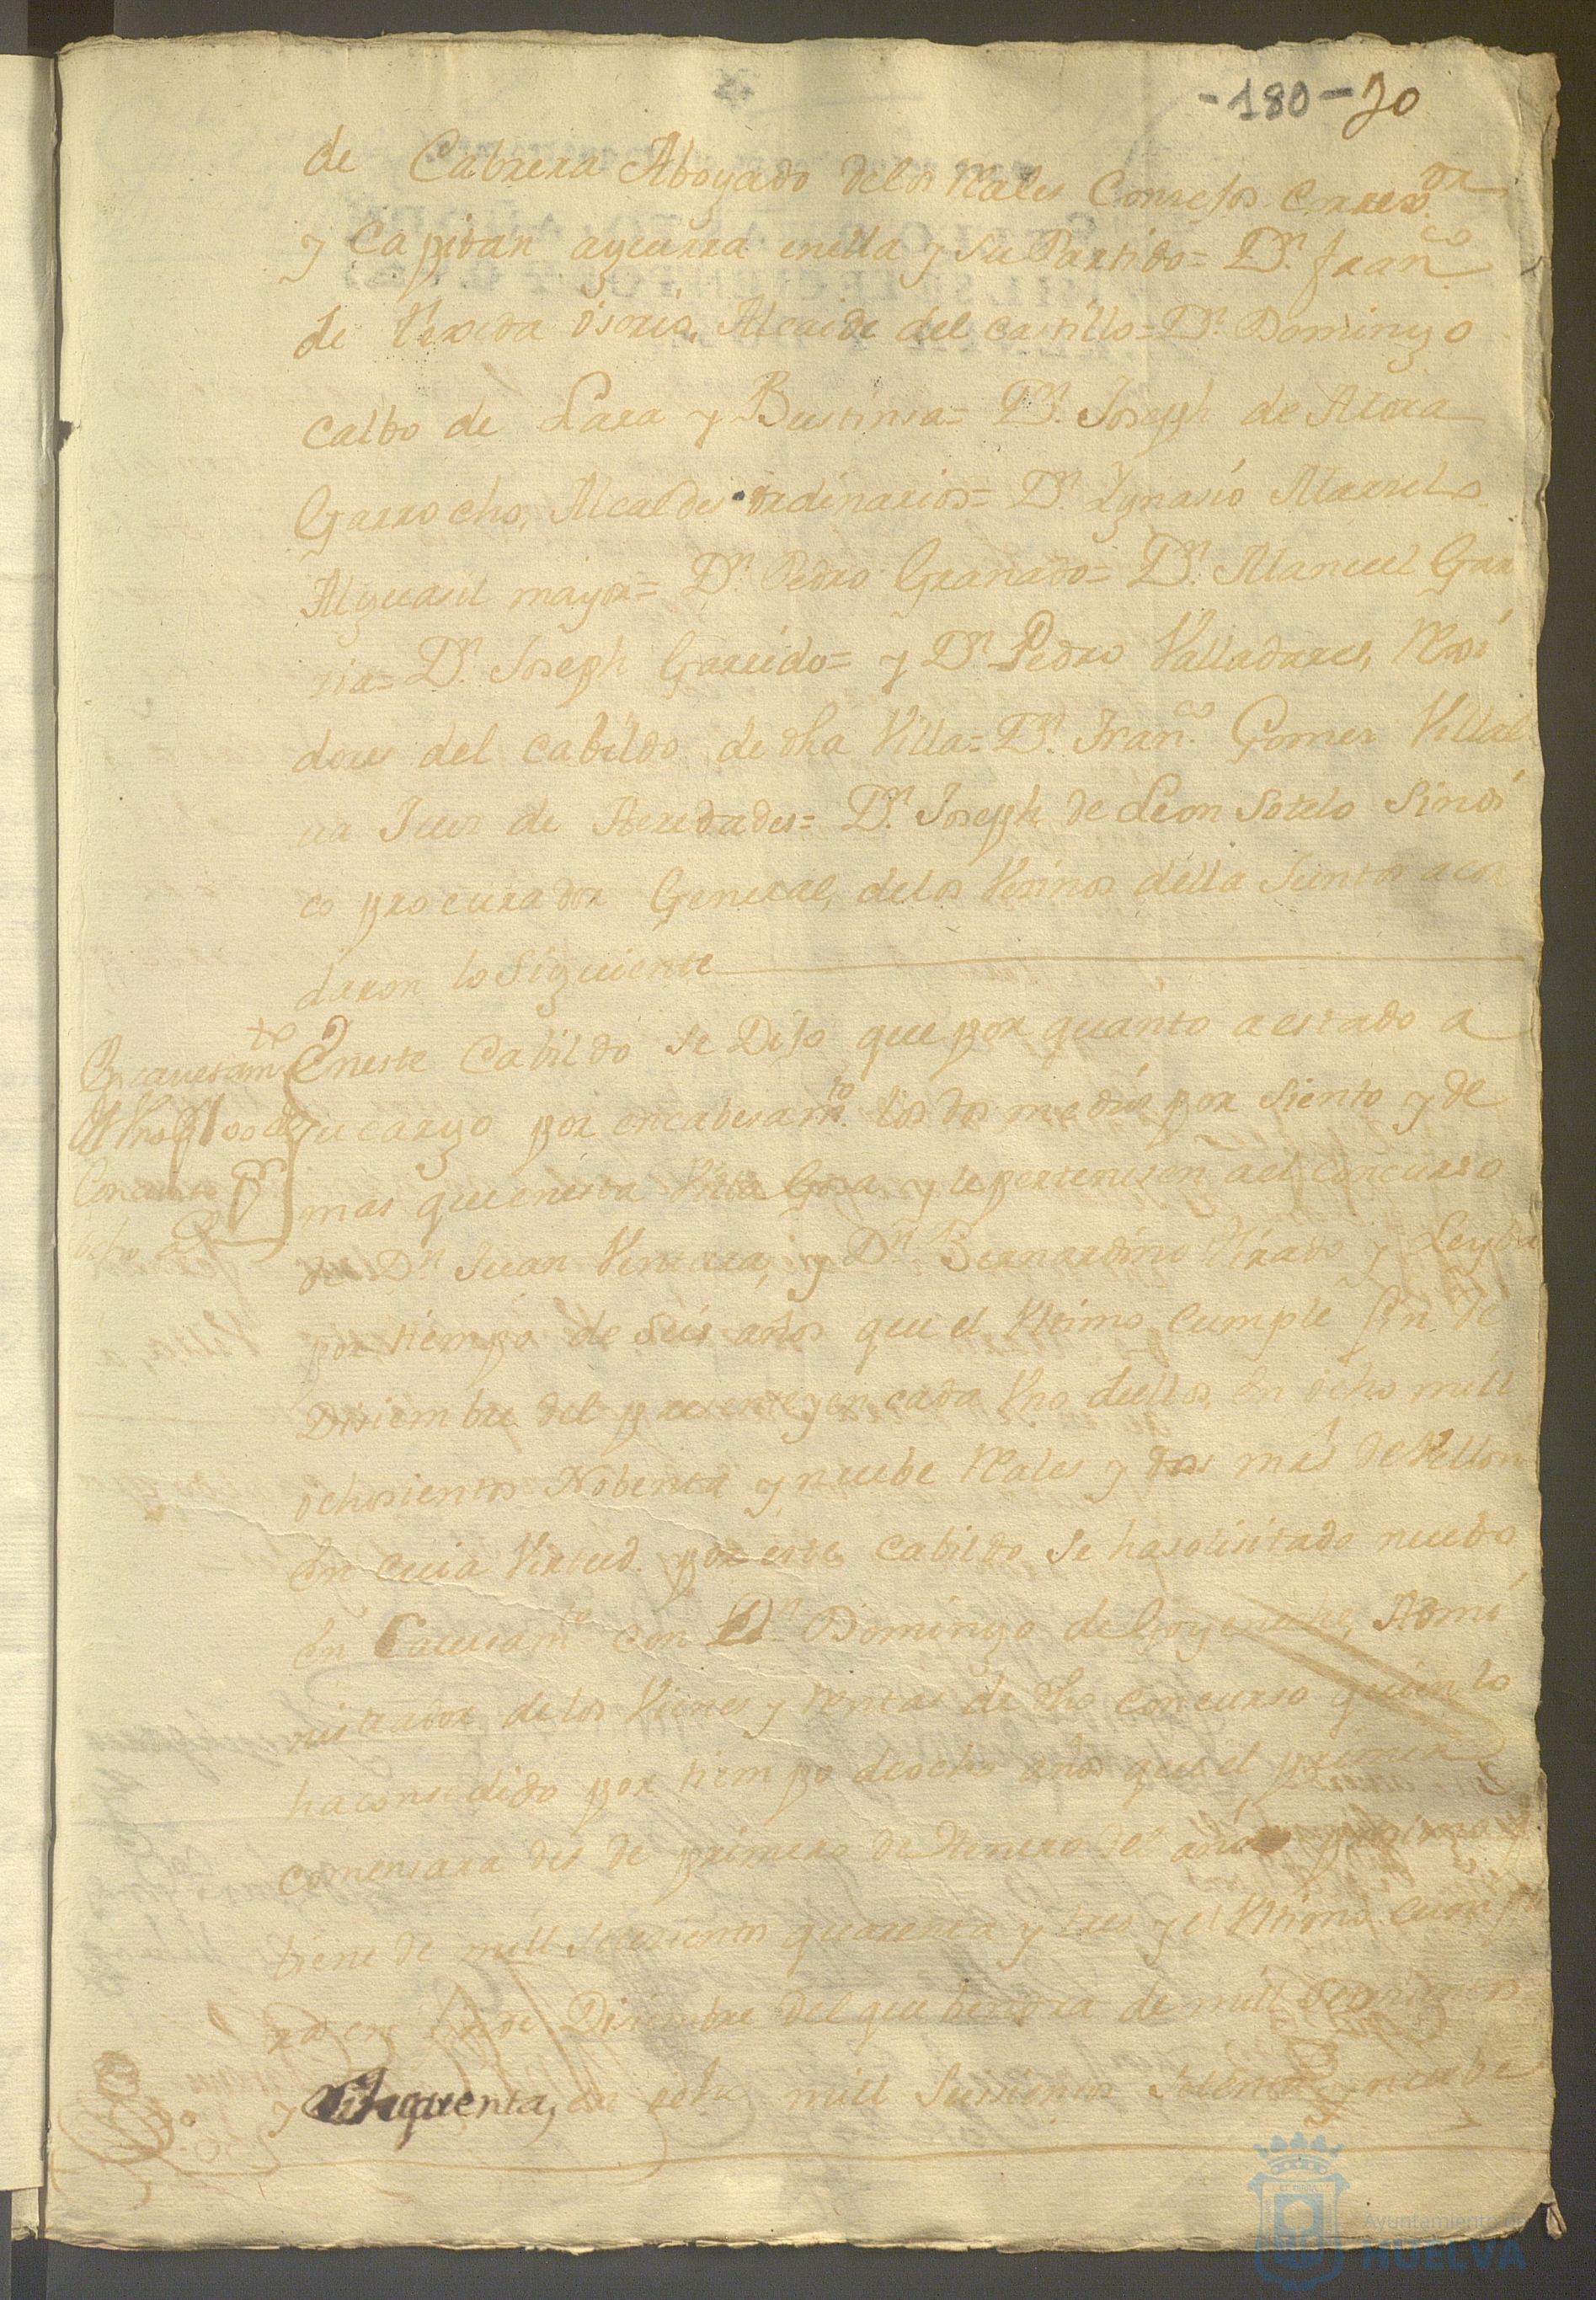 -180- 70
de Cabrera Abogado delos Rales Consejos Correx.or
y Capitan aguerra enella y su Partido= Dn. Fran.co
de Osorio, Alcaide del castillo= Dn. Domingo
calbo de Lara y Bustinsa= Dn. Joseph de Mora
Garrocho, Alcaldes ordinarios= Dn. Ygnasio
Alguasil mayor= Dn. Pedro Granado= Dn. Manuel Gar
sia= Dn. Joseph Garrido= y Dn. Pedro Valladares, Rexi
dores del cabildo de dha Villa= Dn. Fran.co Gomes Villal
ua Jues de Heredades= Dn. Joseph de Leon Sotelo Sindi
co procurador General, delos Vesinos della Juntos acor
daron lo Siguiente
Encauesam.to
Concurso
ocho
Eneste Cabildo se Dijo que por quanto a estado a
su cargo por encabesam.to los dos medios por siento y de
mas que enesta Villa Gosa y le pertenesen a el Concurso
de Dn. Juan y Dn. Bernardino Tirado y Leyba
por tiempo de seis años que el Vltimo Cumple fin de
Disiembre del presente y en cada Vno dellos, en ocho mill
ochosientos Nobenta y nuebe Rales y dos mrs de Vellon
En cuia Virtud por este Cabildo se ha solisitado nuebo
En Cauesam.to con Dn. Domingo de Goyeneche, Admi
nistrador de los Vienes y rentas de dho concurso quien lo
ha consedido por tiempo de ocho años que el primero
comensara des de primero de Henero del año proximo q
biene de mill setesientos quarenta y tres y el Vltimo cumpli
ra en fin de Disiembre del que bendra de mill Setesientos
y Sinquenta, en ocho mill Seissientos setenta y nuebe
Ayuntamiento de
HUELVA